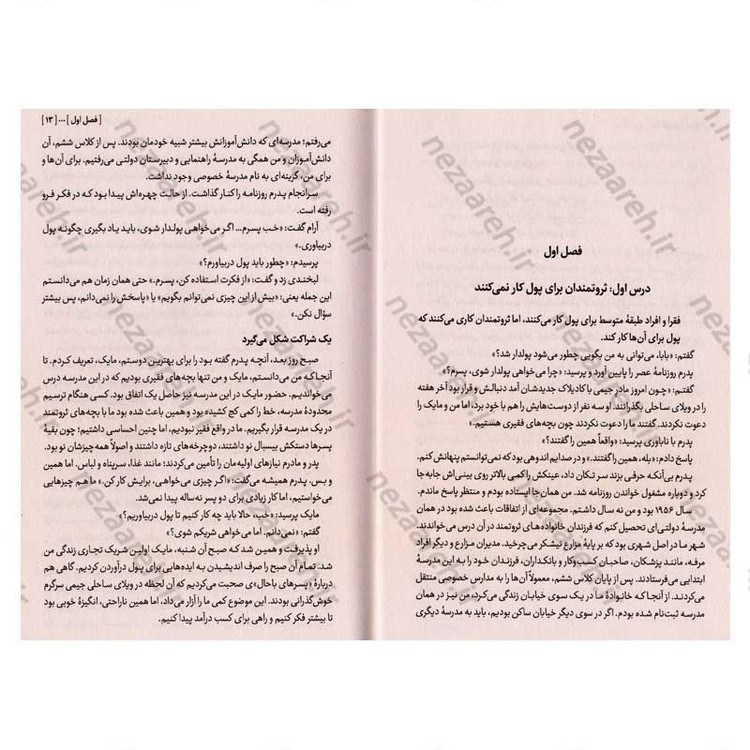 فصل اول
درس اول: ثروتمندان برای پول کار نمی‌کنند
فقرا و افراد طبقهٔ متوسط برای پول کار می‌کنند، اما ثروتمندان کاری می‌کنند که
پول برای آن‌ها کار کند.
گفتم: «بابا، می‌توانی به من بگویی چطور می‌شود پولدار شد؟»
پدرم روزنامهٔ عصر را پایین آورد و پرسید: «چرا می‌خواهی پولدار شوی، پسرم؟»
گفتم: «چون امروز مادر جیمی با کادیلاک جدیدشان آمد دنبالش و قرار بود آخر هفته
را در ویلای ساحلی بگذرانند. او سه نفر از دوست‌هایش را هم با خود برد، اما من و مایک را
دعوت نکردند. گفتند ما را دعوت نکردند چون بچه‌های فقیری هستیم.»
پدرم با ناباوری پرسید: «واقعاً همین را گفتند؟»
پاسخ دادم: «بله، همین را گفتند.» و در صدایم اندوهی بود که نمی‌توانستم پنهانش کنم.
پدرم بی‌آنکه حرفی بزند سر تکان داد، عینکش را کمی بالاتر روی بینی‌اش جابه‌جا
کرد و دوباره مشغول خواندن روزنامه شد. من همان‌جا ایستاده بودم و منتظر پاسخ ماندم.
سال ۱۹۵۶ بود و من نه سال داشتم. مجموعه‌ای از اتفاقات باعث شده بود من در همان
مدرسهٔ دولتی‌ای تحصیل کنم که فرزندان خانواده‌های ثروتمند در آن درس می‌خواندند.
شهر ما در اصل شهری بود که بر پایهٔ مزارع نیشکر می‌چرخید. مدیران مزارع و دیگر افراد
مرفه، مانند پزشکان، صاحبان کسب‌وکار و بانکداران، فرزندان خود را به این مدرسهٔ
ابتدایی می‌فرستادند. پس از پایان کلاس ششم، معمولاً آن‌ها به مدارس خصوصی منتقل
می‌کردند. از آنجا که خانوادهٔ ما در یک سوی خیابان زندگی می‌کرد، من نیز در همان
مدرسه ثبت‌نام شده بودم. اگر در سوی دیگر خیابان ساکن بودیم، باید به مدرسهٔ دیگری
[ فصل اول ] ••• [ ۱۳ ]
می‌رفتم؛ مدرسه‌ای که دانش‌آموزانش بیشتر شبیه خودمان بودند. پس از کلاس ششم، آن
دانش‌آموزان و من همگی به مدرسهٔ راهنمایی و دبیرستان دولتی می‌رفتیم. برای آن‌ها و
برای من، گزینه‌ای به نام مدرسهٔ خصوصی وجود نداشت.
سرانجام پدرم روزنامه را کنار گذاشت. از حالت چهره‌اش پیدا بود که در فکر فرو
رفته است.
آرام گفت: «خب پسرم... اگر می‌خواهی پولدار شوی، باید یاد بگیری چگونه پول
دربیاوری.»
پرسیدم: «چطور باید پول دربیاورم؟»
لبخندی زد و گفت: «از فکرت استفاده کن، پسرم.» حتی همان زمان هم می‌دانستم
این جمله یعنی: «بیش از این چیزی نمی‌توانم بگویم» یا «پاسخش را نمی‌دانم، پس بیشتر
سؤال نکن.»
یک شراکت شکل می‌گیرد
صبح روز بعد، آنچه پدرم گفته بود را برای بهترین دوستم، مایک، تعریف کردم. تا
آنجا که من می‌دانستم، مایک و من تنها بچه‌های فقیری بودیم که در این مدرسه درس
می‌خواندیم. حضور مایک در این مدرسه نیز حاصل یک اتفاق بود. کسی هنگام ترسیم
محدودهٔ مدرسه، خط را کمی کج کشیده بود و همین باعث شده بود ما با بچه‌های ثروتمند
در یک مدرسه قرار بگیریم. ما در واقع فقیر نبودیم، اما چنین احساسی داشتیم؛ چون بقیهٔ
پسرها دستکش بیسبال نو داشتند، دوچرخه‌های تازه داشتند و اصولاً همه‌چیزشان نو بود.
پدر و مادرم نیازهای اولیه‌مان را تأمین می‌کردند؛ مانند غذا، سرپناه و لباس. اما همین
و بس. پدرم همیشه می‌گفت: «اگر چیزی می‌خواهی، برایش کار کن.» ما هم چیزهایی
می‌خواستیم، اما کار زیادی برای دو پسر نه‌ساله پیدا نمی‌شد.
مایک پرسید: «خب، حالا باید چه کار کنیم تا پول دربیاوریم؟»
گفتم: «نمی‌دانم. اما می‌خواهی شریکم شوی؟»
او پذیرفت و همین شد که صبح آن شنبه، مایک اولین شریک تجاری زندگی من
شد. تمام آن صبح را صرف اندیشیدن به ایده‌هایی برای پول درآوردن کردیم. گاهی هم
دربارهٔ «پسرهای باحال»ی صحبت می‌کردیم که آن لحظه در ویلای ساحلی جیمی سرگرم
خوش‌گذرانی بودند. این موضوع کمی ما را آزار می‌داد، اما همین ناراحتی، انگیزهٔ خوبی بود
تا بیشتر فکر کنیم و راهی برای کسب درآمد پیدا کنیم.
nezaareh.ir